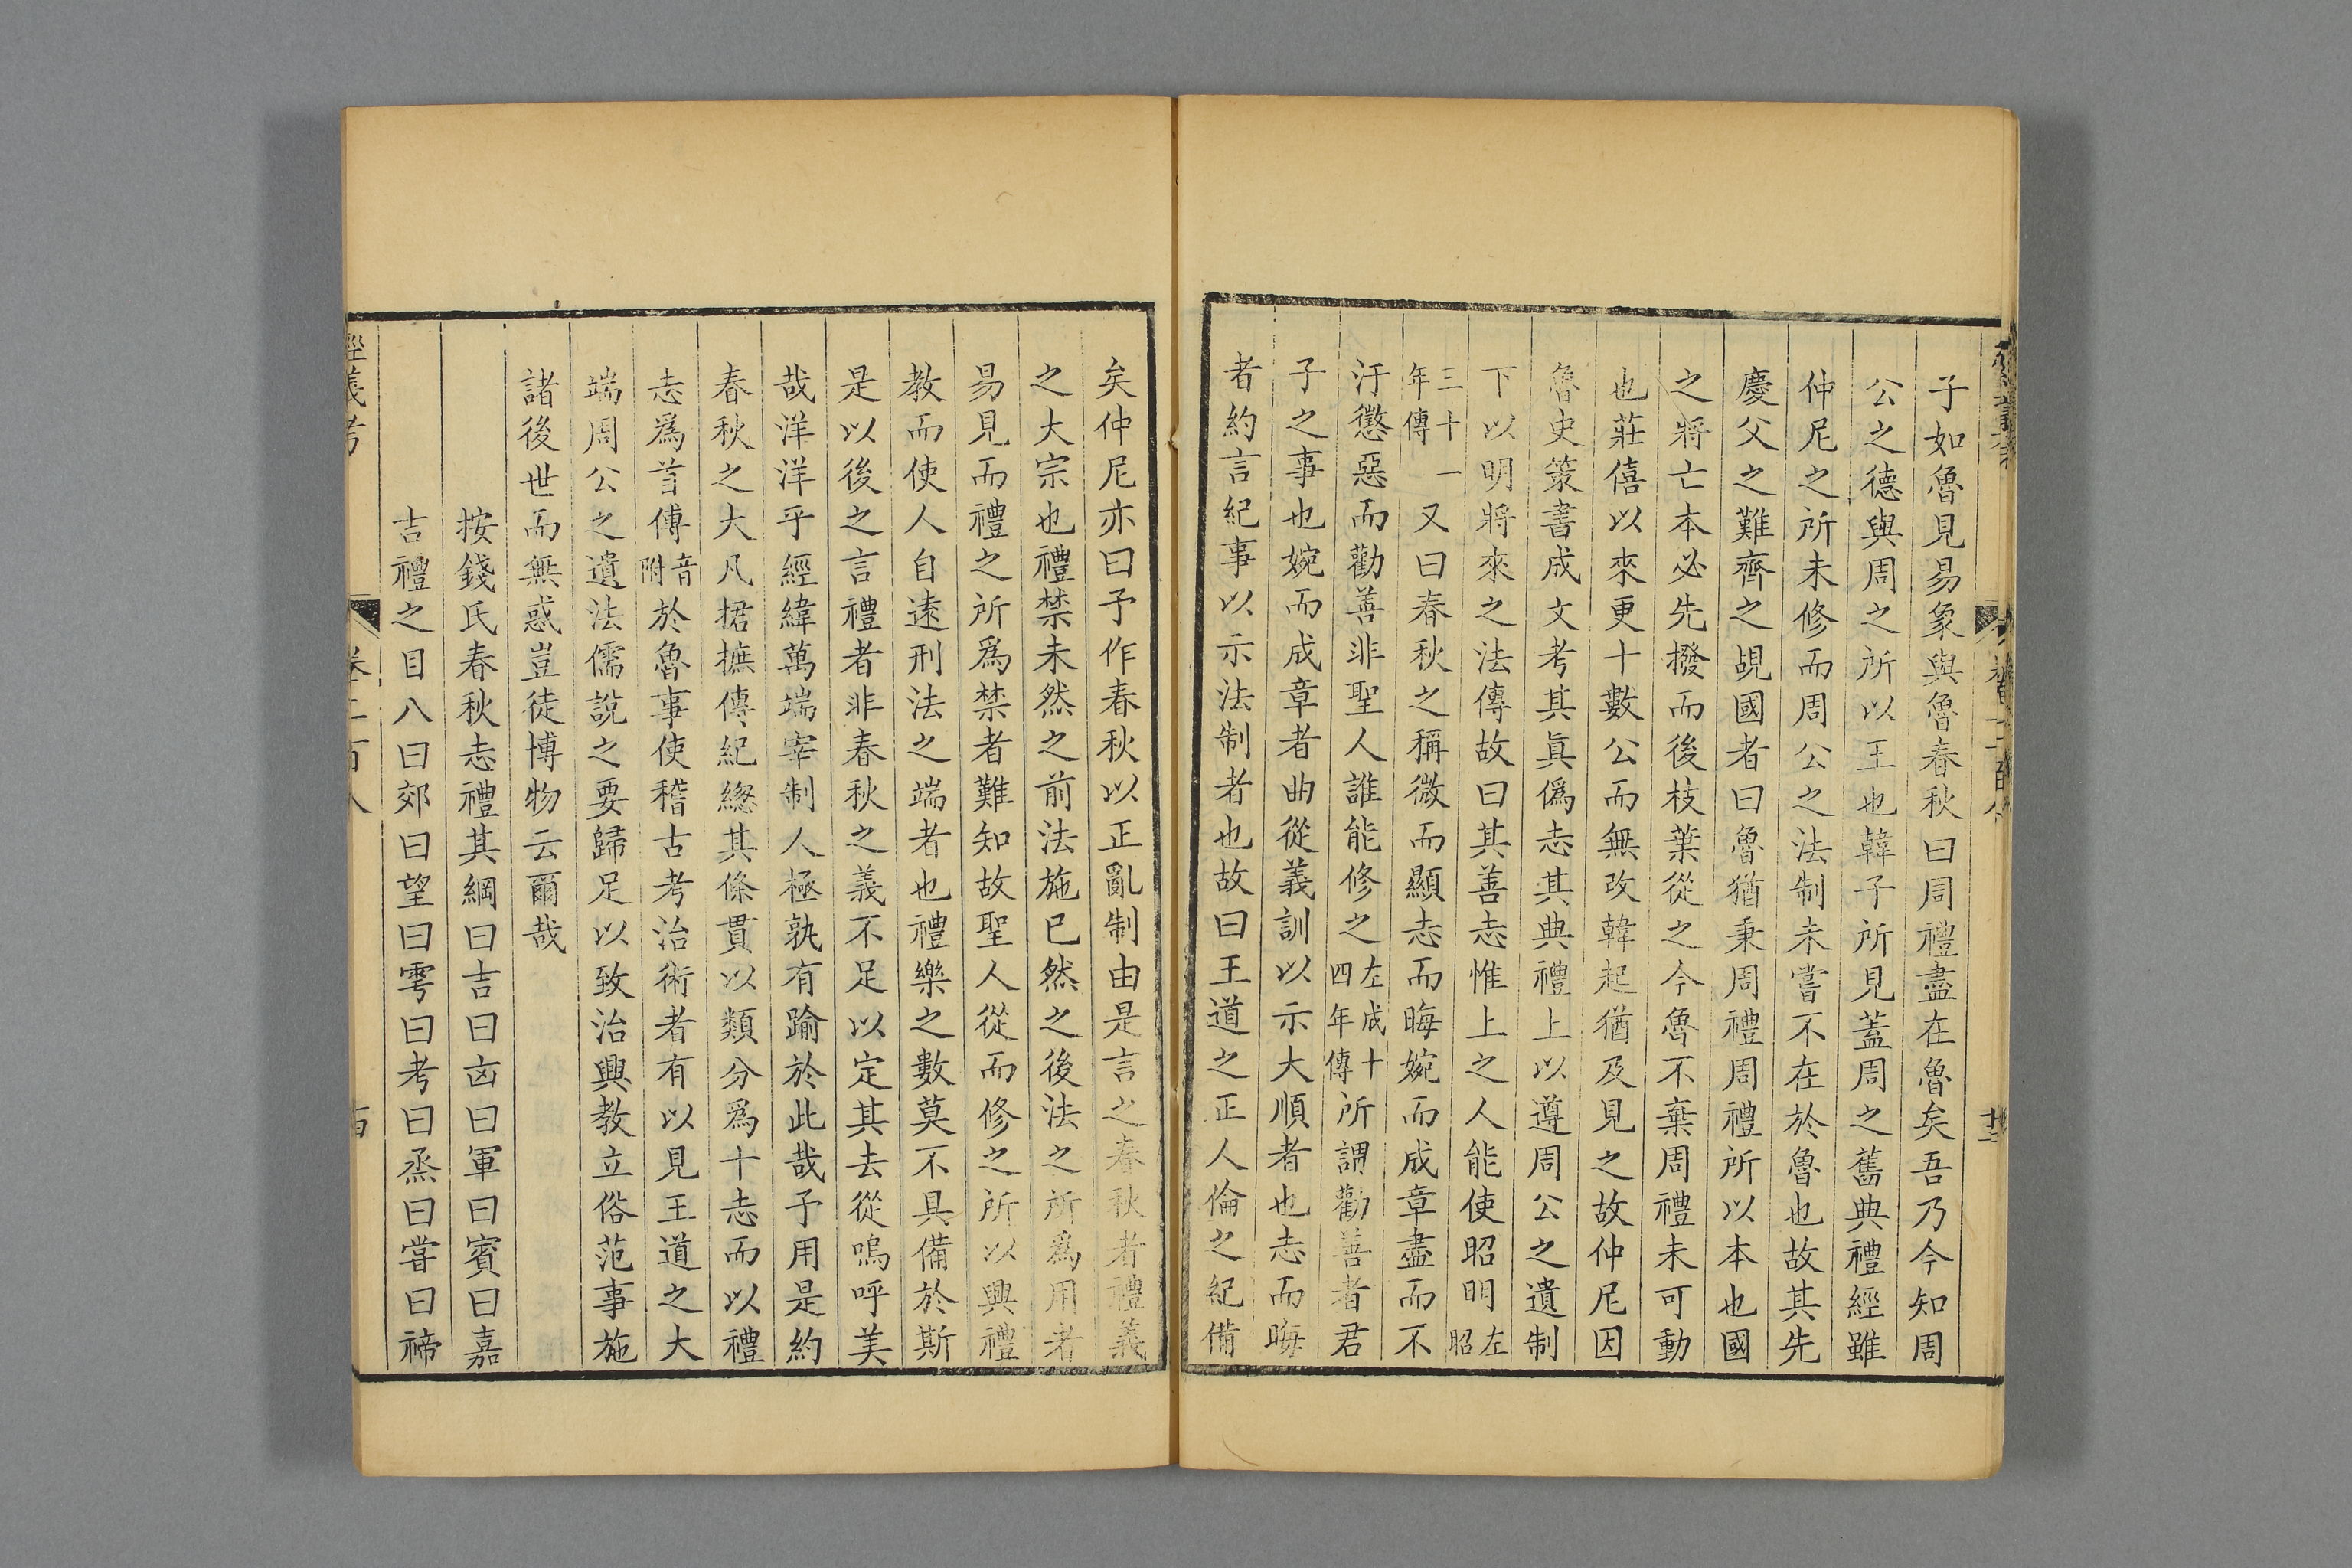 子如魯見易象與魯春秋曰周禮盡在魯矣吾乃今知周
公之德與周之所以王也韓子所見蓋周之舊典禮經雖
仲尼之所未修而周公之法制未嘗不在於魯也故其先
慶父之難齊之覘國者曰魯猶秉周禮周禮所以本也國
之將亡本必先撥而後枝葉從之今魯不棄周禮未可動
也莊僖以來更十數公而無改韓起猶及見之故仲尼因
魯史策書成文考其眞僞志其典禮上以遵周公之遺制
下以明將來之法傳故曰其善志惟上之人能使昭明左昭
三十一年傳又曰春秋之稱微而顯志而晦婉而成章盡而不
汙懲惡而勸善非聖人誰能修之左成十四年傳所謂勸善者君
子之事也婉而成章者曲從義訓以示大順者也志而晦
者約言紀事以示法制者也故曰王道之正人倫之紀備
矣仲尼亦曰予作春秋以正亂制由是言之春秋者禮義
之大宗也禮禁未然之前法施已然之後法之所爲用者
易見而禮之所爲禁者難知故聖人從而修之所以興禮
教而使人自遠刑法之端者也禮樂之數莫不具備於斯
是以後之言禮者非春秋之義不足以定其去從嗚呼美
哉洋洋乎經緯萬端宰制人極孰有踰於此哉予用是約
春秋之大凡捃摭傳紀總其條貫以類分爲十志而以禮
志爲首傅音附於魯事使稽古考治術者有以見王道之大
端周公之遺法儒說之要歸足以致治興教立俗范事施
諸後世而無惑豈徒博物云爾哉
按錢氏春秋志禮其綱曰吉曰凶曰軍曰賓曰嘉
吉禮之目八曰郊曰望曰雩曰考曰烝曰嘗曰禘
經義考
卷二百八